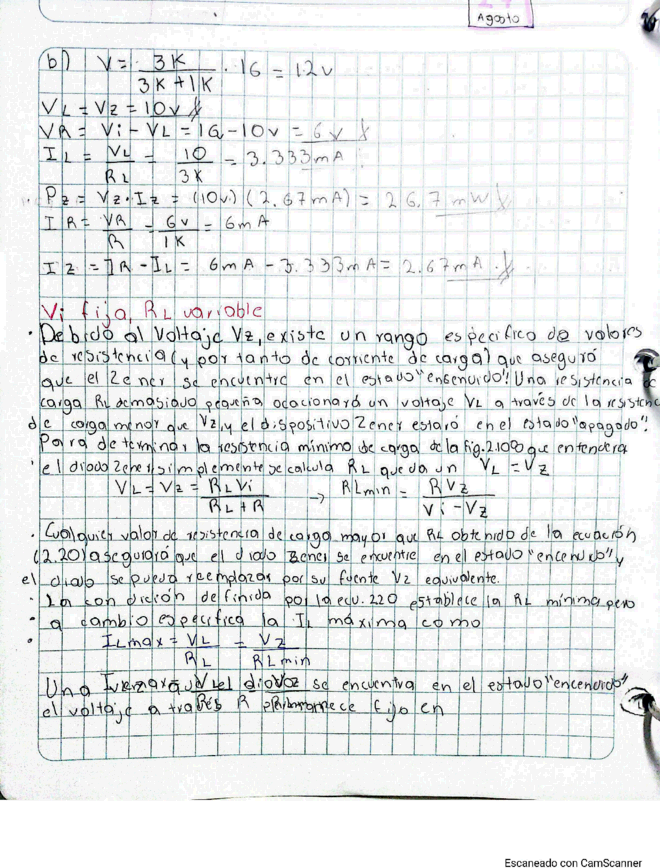 Agosto
b) V = 3K / 3K + 1K · 16 = 12v
VL = Vz = 10v
VR = Vi - VL = 16 - 10v = 6v
IL = VL / RL = 10 / 3K = 3.333mA
Pz = Vz · Iz = (10v) (2.67mA) = 26.7mW
IR = VR / R = 6v / 1K = 6mA
Iz = IR - IL = 6mA - 3.333mA = 2.67mA
Vi fija, RL variable
· Debido al Voltaje Vz, existe un rango especifico de valores
de resistencia (y por tanto de corriente de carga) que asegura
que el Zener se encuentre en el estado "encendido"! Una resistencia de
carga RL demasiado pequeña ocacionará un voltaje VL a través de la resistenc
de carga menor que Vz, y el dispositivo Zener estará en el estado "apagado"!
Para determinar la resistencia mínimo de carga de la fig. 2.106 que entendera
el diodo Zener, simplemente se calcula RL que da un VL = Vz
VL = Vz = RL Vi / RL + R → RLmin = RVz / Vi - Vz
· Cualquier valor de resistencia de carga mayor que RL obtenido de la ecuación
(2.20) asegurará que el diodo Zener se encuentre en el estado "encendido" y
el diodo se pueda reemplazar por su fuente Vz equivalente.
· La condición definida por la ecu. 2.20 establece la RL mínima pero
· a cambio especifica la IL máxima como
· ILmax = VL / RL = Vz / RLmin
Una el diodo se encuentra en el estado "encendido"
el voltaje a través R permanece fijo en
Escaneado con CamScanner